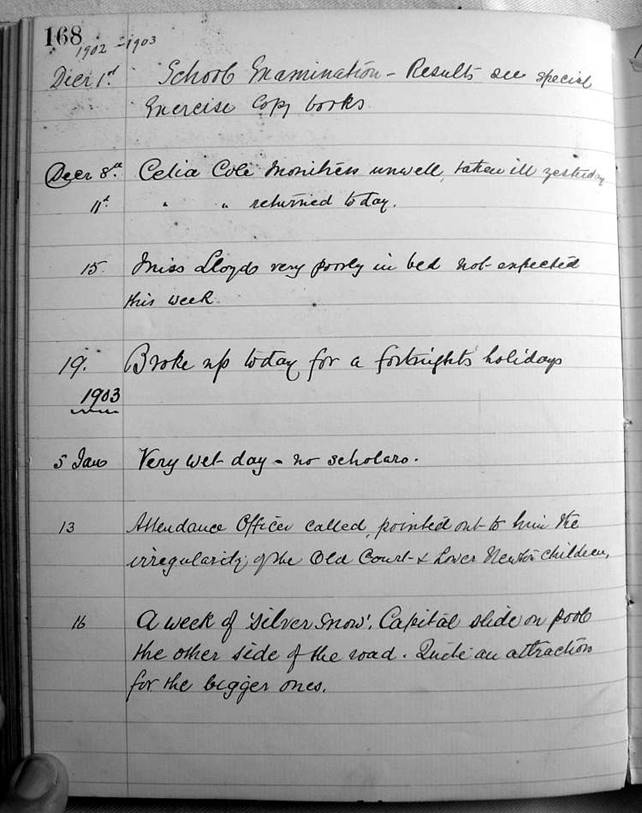 168
1902 - 1903
Decr 1st School Examination - Results see special
Exercise Copy books
Decr 8th Celia Cole Monitress unwell, taken ill yesterday
11th " " returned today.
15 Miss Lloyds very poorly in bed not expected
this week
19. Broke up today for a fortnights holidays
1903
5 Jan Very wet day - no scholars.
13 Attendance Officer called, pointed out to him the
irregularity of the Old Court & Lower Newton children.
16 A week of 'silver snow'. Capital slide on pool
the other side of the road. Quite an attraction
for the bigger ones.